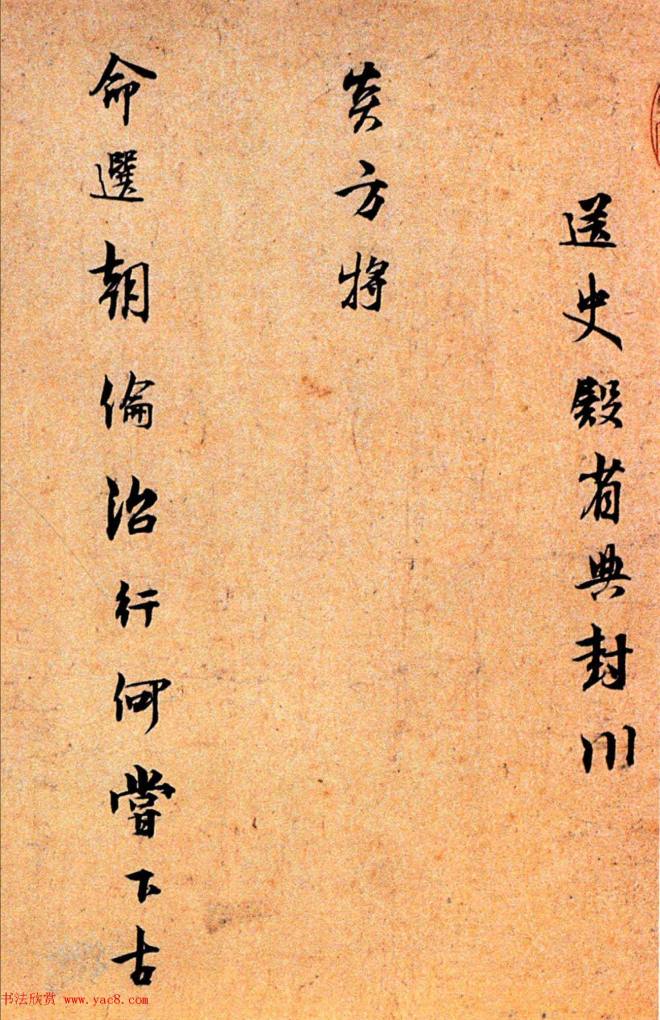 送史殿省典封川
炎方將
命選朝倫治行何嘗下古
书法欣赏 www.yac8.com